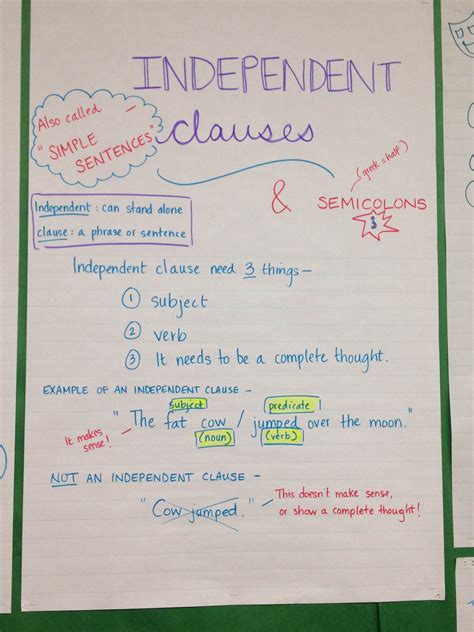 INDEPENDENT
Also called –
"SIMPLE
SENTENCES"
clauses
(greek = half)
& SEMICOLONS
;
Independent : can stand alone
clause : a phrase or sentence
Independent clause need 3 things –
① subject
② verb
③ It needs to be a complete thought.
EXAMPLE OF AN INDEPENDENT CLAUSE –
subject predicate
" The fat cow / jumped over the moon."
It makes
sense!
(noun) (verb)
NOT AN INDEPENDENT CLAUSE –
"Cow jumped."
– This doesn't make sense,
or show a complete thought!